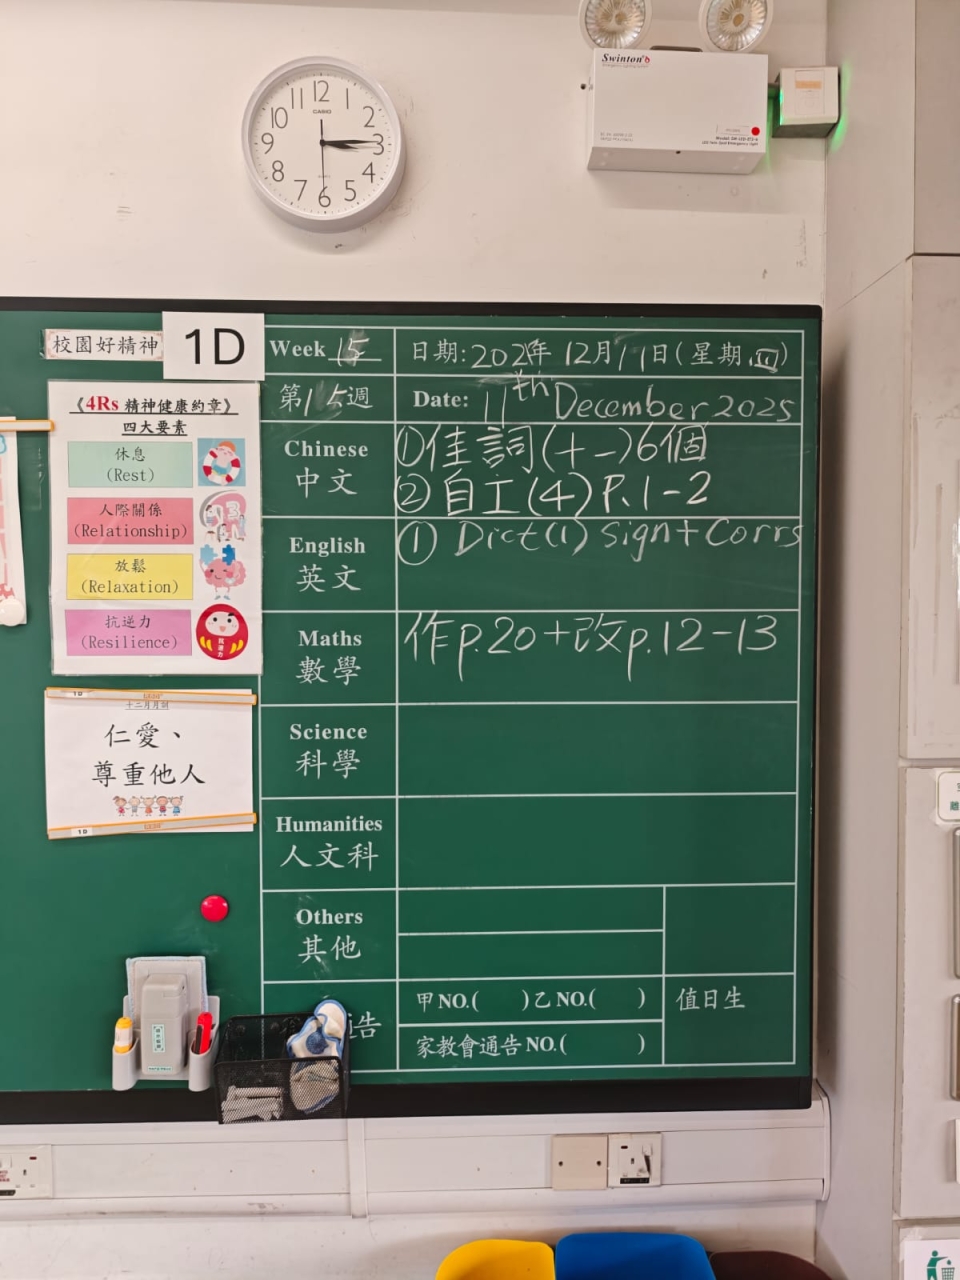 12 1 2 3 4 5 6 7 8 9 10 11
CASIO
Swinton
校園好精神
1D
Week 15
日期: 2025年 12月 11日 (星期 四)
第 15 週
Date: 11th December 2025
《4Rs 精神健康約章》
四大要素
休息
(Rest)
人際關係
(Relationship)
放鬆
(Relaxation)
抗逆力
(Resilience)
抗逆力
Chinese
中文
①佳詞(十一)6個
②自工(4)P.1-2
English
英文
① Dict(1) Sign+Corrs
Maths
數學
作p.20+改p.12-13
1D
十二月月訓
仁愛、
尊重他人
1D
Science
科學
Humanities
人文科
Others
其他
告
甲NO.( )乙NO.( )
家教會通告NO.( )
值日生